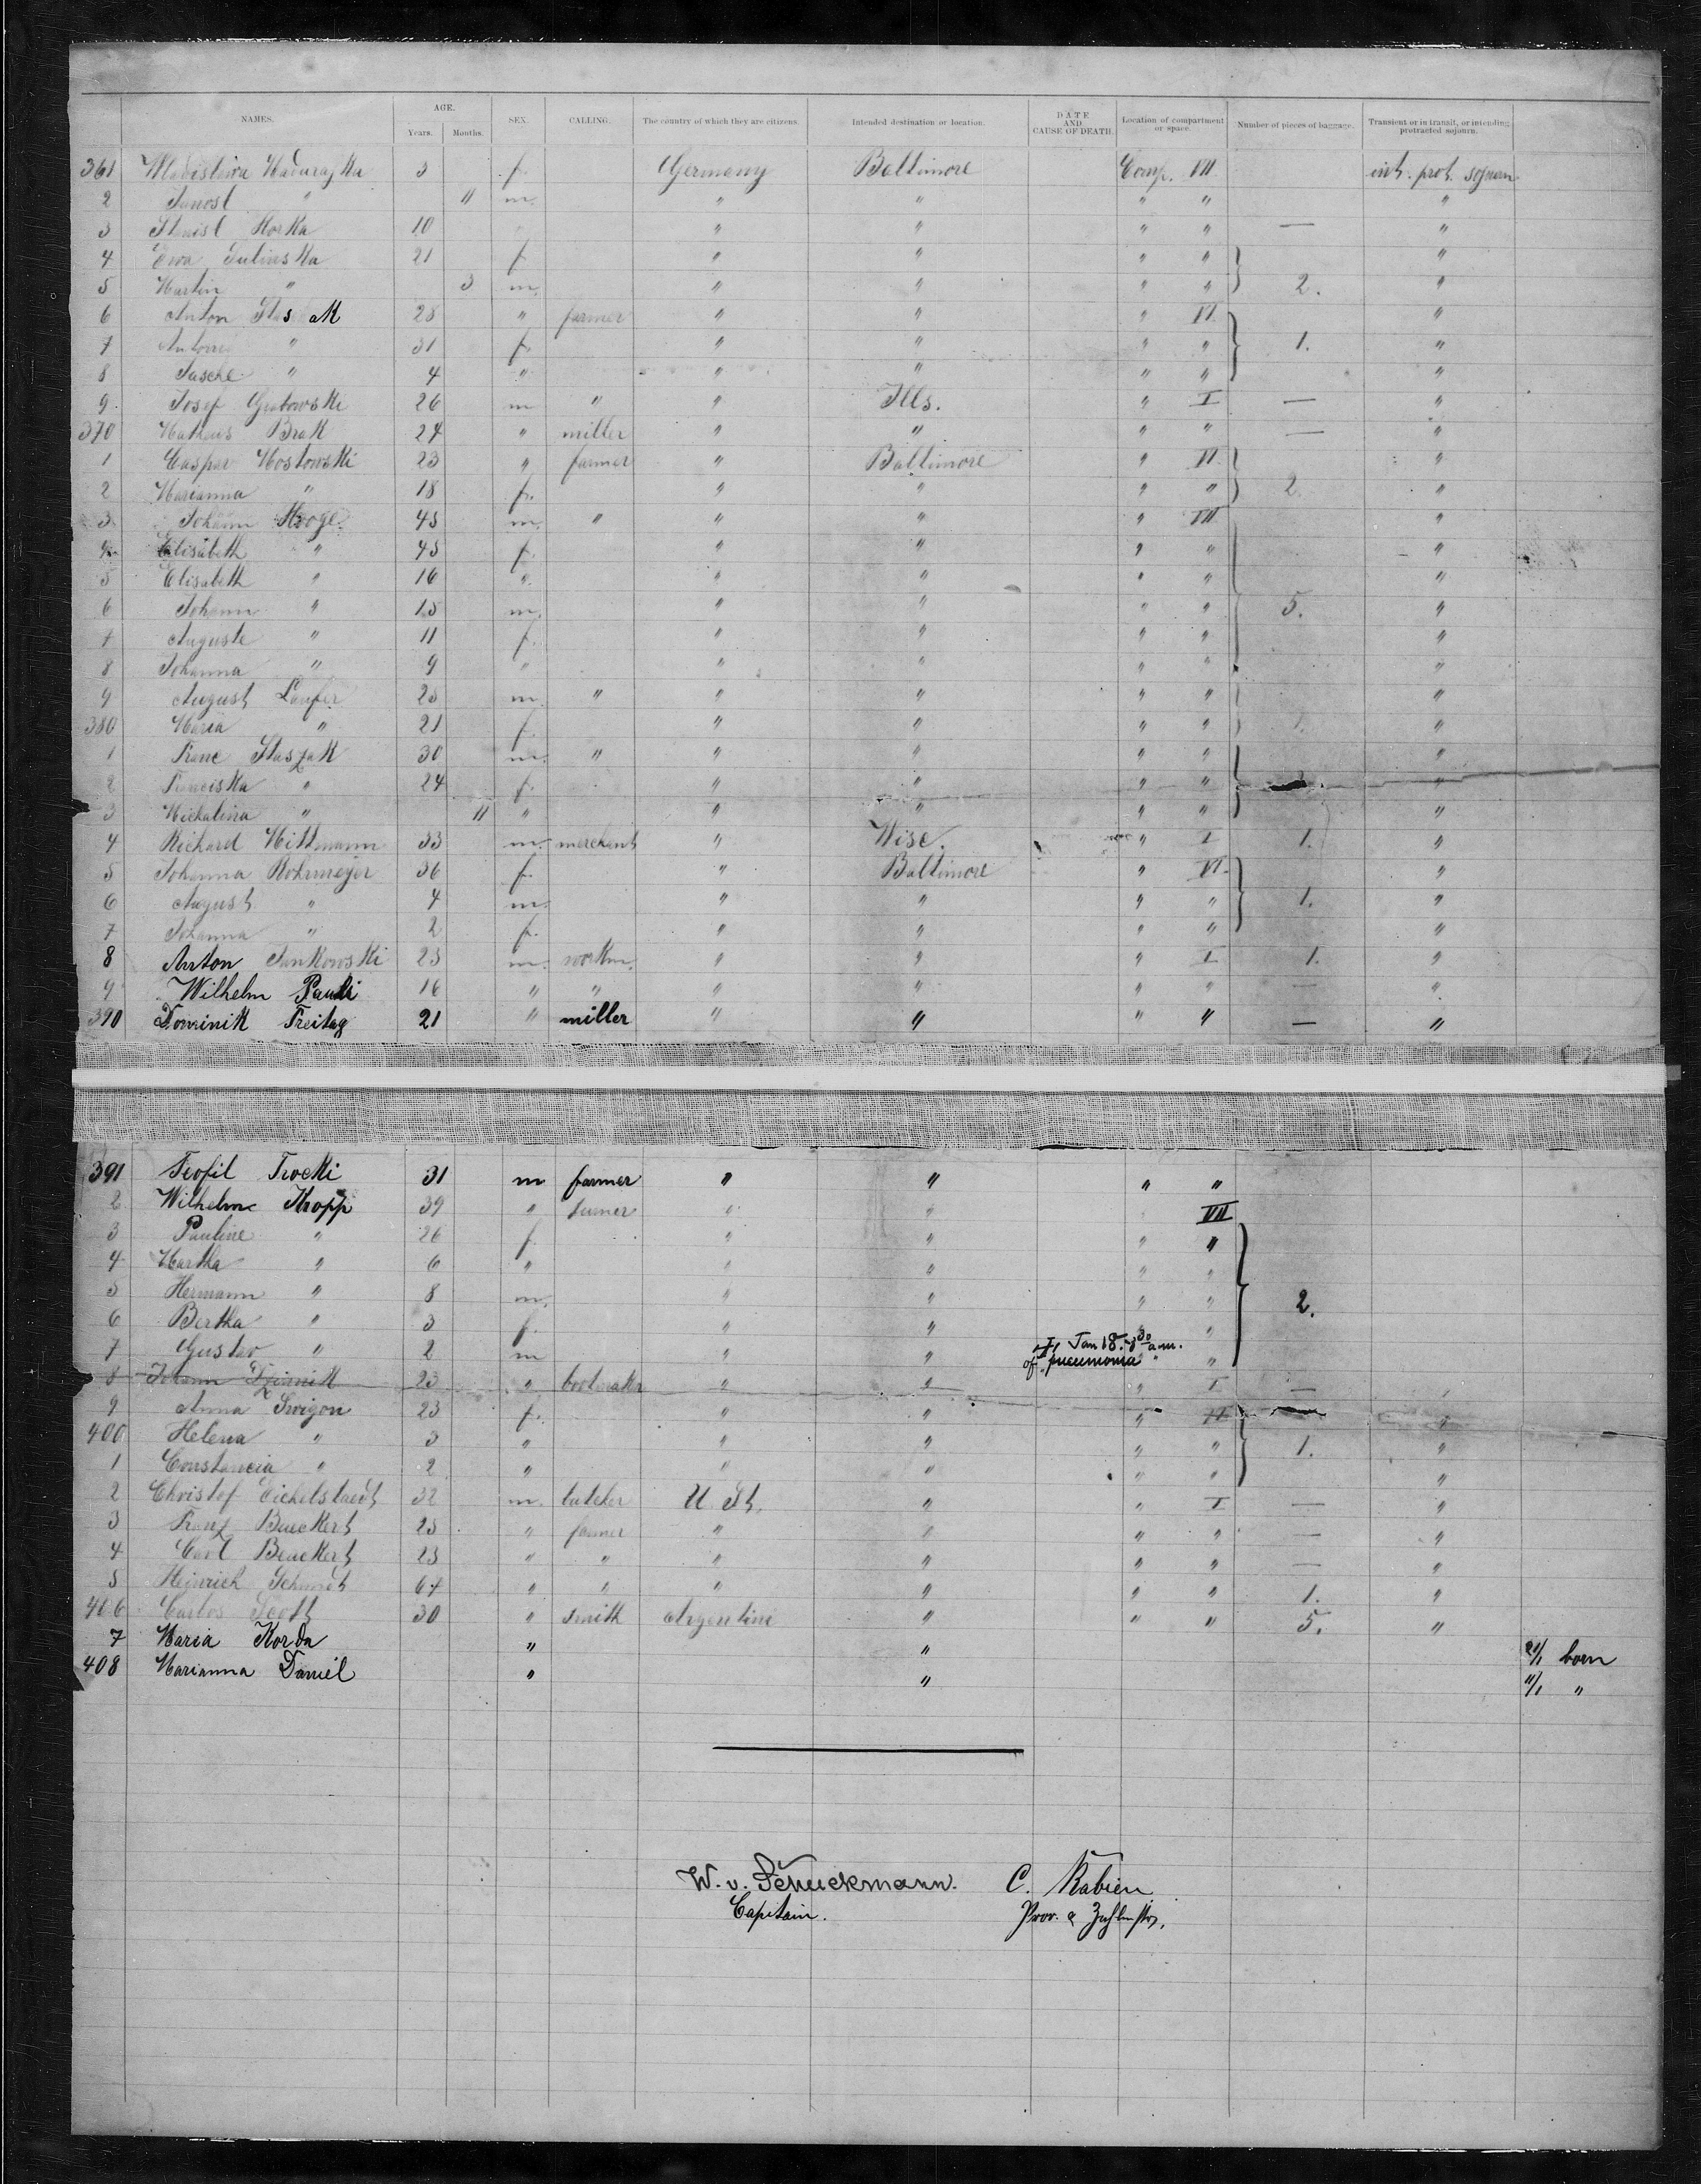 NAMES. AGE. Years. Months. SEX. CALLING. The country of which they are citizens. Intended destination or location. DATE AND CAUSE OF DEATH. Location of compartment or space. Number of pieces of baggage. Transient or in transit, or intending protracted sojourn.
361 3 f. Germany Baltimore Comp. VII int. prot. sojourn.
2 " 11 m. " " " " "
3 Korka 10 " " " " — "
4 Ewa Julinska 21 f " " " " "
5 Martin " 3 m. " " " " 2. "
6 Anton 28 " farmer " " " VI "
7 " 31 f. " " " " 1. "
8 " 4 " " " " " "
9 Josef Grabowski 26 m " " Ills. " I — "
370 Matheus Brak 24 " miller " " " " — "
1 Caspar Mostowski 23 " farmer " Baltimore " VI "
2 Marianna " 18 f. " " " " 2. "
3 Johann Hooge 45 m. " " " " VII "
4 Elisabeth " 45 f. " " " " "
5 Elisabeth " 16 " " " " " "
6 Johann " 15 m. " " " " 5. "
7 Auguste " 11 f. " " " " "
8 Johanna " 9 " " " " " "
9 August Laufer 25 m. " " " " " "
380 Maria " 21 f. " " " " 1. "
1 Franc Staszak 30 m. " " " " " "
2 Franciska " 24 f. " " " " "
3 Michalina " 11 " " " " " "
4 Richard Mittmann 33 m. merchant " Wisc. " I 1. "
5 Johanna Rohrmeyer 36 f. " Baltimore " VI "
6 August " 4 m. " " " " 1. "
7 Johanna " 2 f. " " " " "
8 Anton Jankowski 23 m. workm. " " " I 1. "
9 Wilhelm 16 " " " " " " — "
390 Dominik Freitag 21 " miller " " " " — "
391 Teofil Trocki 31 m farmer " " " "
2 Wilhelm Kropp 39 " " " VII
3 Pauline " 26 f. " " " "
4 Martha " 6 " " " " "
5 Hermann " 8 m. " " " " 2.
6 Bertha " 3 f. " " " "
7 Gustav " 2 m " " Jan 18. 8 30 a.m. of pneumonia " "
8 Johann 23 " " " " I —
9 Anna Swigon 23 f. " " " VI "
400 Helena " 3 " " " " " 1. "
1 Constancia " 2 " " " " " "
2 Christof Eichelstaedt 32 m. butcher U St. " " I — "
3 Franz Bueckert 25 " farmer " " " " — "
4 Carl Beuckert 23 " " " " " " — "
5 Heinrich Schmidt 67 " " " " " " 1. "
406 Carlos Scott 30 " smith Argentini " " " 5. "
7 Maria Korda " " 21/1 born
408 Marianna Daniel " " 11/1 "
W. v. Schuckmann. C. Kabien
Capitain. Prov. & Zahlmstr.